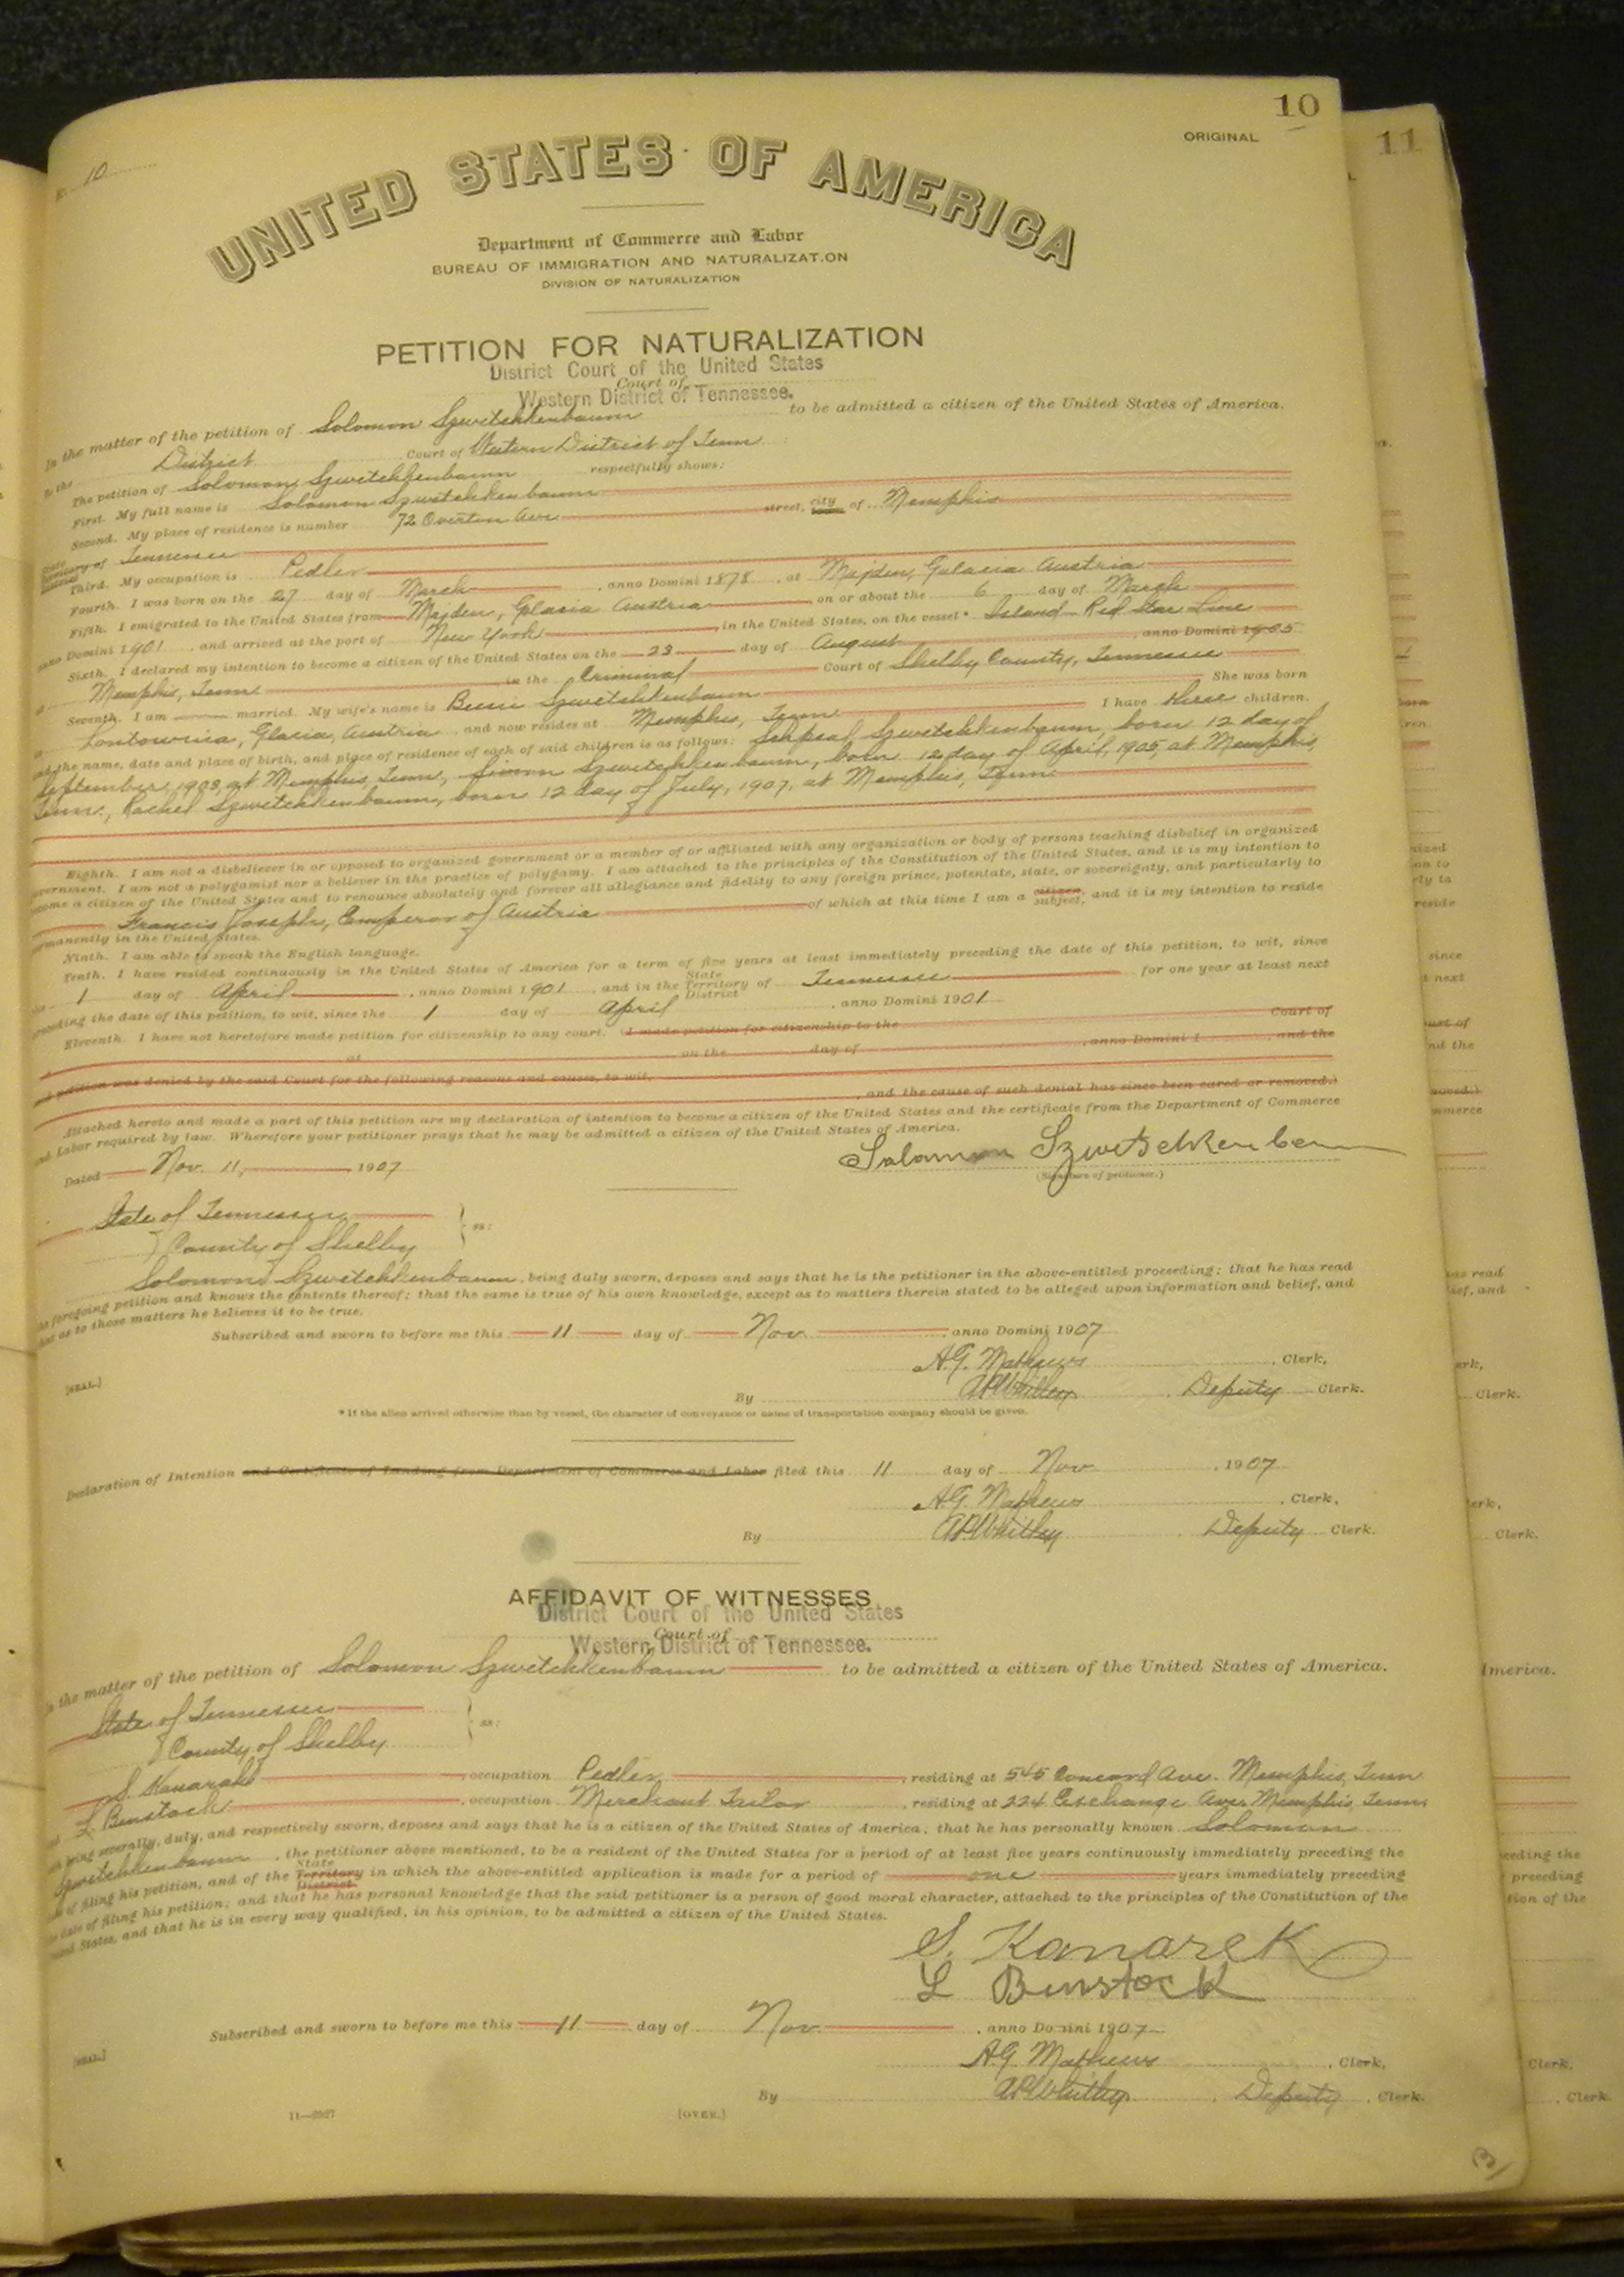 10
ORIGINAL
11
10
UNITED STATES OF AMERICA
Department of Commerce and Labor
BUREAU OF IMMIGRATION AND NATURALIZATION
DIVISION OF NATURALIZATION
PETITION FOR NATURALIZATION
District Court of the United States
Court of
Western District of Tennessee.
In the matter of the petition of Solomon Szwetchkenbaum to be admitted a citizen of the United States of America.
To the District Court of Western District of Tenn
The petition of Solomon Szwetchkenbaum respectfully shows:
First. My full name is Solomon Szwetchkenbaum
Second. My place of residence is number 72 Overton Ave street, city of Memphis
State Territory of Tennessee
Third. My occupation is Pedler
Fourth. I was born on the 27 day of March, anno Domini 1878, at Majden, Galacia Austria
Fifth. I emigrated to the United States from Majden, Glacia Austria, on or about the 6 day of March
anno Domini 1901, and arrived at the port of New York, in the United States, on the vessel* Island Red Star Line
Sixth. I declared my intention to become a citizen of the United States on the 23 day of August, anno Domini 1905
at Memphis, Tenn in the Criminal Court of Shelby County, Tennessee
Seventh. I am married. My wife's name is Bessie Szwetchkenbaum She was born
Glacia, Austria and now resides at Memphis, Tenn I have three children.
and the name, date and place of birth, and place of residence of each of said children is as follows: Szwetchkenbaum, born 12 day of
September, 1903, at Memphis Tenn, Simon Szwetchkenbaum, born 12 day of April, 1905, at Memphis,
Tenn., Rachel Szwetchkenbaum, born 12 day of July, 1907, at Memphis, Tenn
Eighth. I am not a disbeliever in or opposed to organized government or a member of or affiliated with any organization or body of persons teaching disbelief in organized
government. I am not a polygamist nor a believer in the practice of polygamy. I am attached to the principles of the Constitution of the United States, and it is my intention to
become a citizen of the United States and to renounce absolutely and forever all allegiance and fidelity to any foreign prince, potentate, state, or sovereignty, and particularly to
Francis Joseph, Emperor of Austria of which at this time I am a citizen subject, and it is my intention to reside
permanently in the United States.
Ninth. I am able to speak the English language.
Tenth. I have resided continuously in the United States of America for a term of five years at least immediately preceding the date of this petition, to wit, since
1 day of April, anno Domini 1901, and in the State Territory District of Tennessee for one year at least next
preceding the date of this petition, to wit, since the 1 day of April, anno Domini 1901
Eleventh. I have not heretofore made petition for citizenship to any court. (I made petition for citizenship to the Court of
at on the day of, anno Domini 1 and the
said petition was denied by the said Court for the following reasons and causes, to wit,
, and the cause of such denial has since been cured or removed.)
Attached hereto and made a part of this petition are my declaration of intention to become a citizen of the United States and the certificate from the Department of Commerce
and Labor required by law. Wherefore your petitioner prays that he may be admitted a citizen of the United States of America.
Dated Nov. 11, 1907
Solomon
(Signature of petitioner.)
State of Tennessee
County of Shelby
ss:
Solomon Szwetchkenbaum, being duly sworn, deposes and says that he is the petitioner in the above-entitled proceeding; that he has read
the foregoing petition and knows the contents thereof; that the same is true of his own knowledge, except as to matters therein stated to be alleged upon information and belief, and
that as to those matters he believes it to be true.
Subscribed and sworn to before me this 11 day of Nov. anno Domini 1907
[SEAL.]
A.G. Mathews, Clerk.
By A.P. Whitley, Deputy Clerk.
* If the alien arrived otherwise than by vessel, the character of conveyance or name of transportation company should be given.
Declaration of Intention and Certificate of Landing from Department of Commerce and Labor filed this 11 day of Nov, 1907
A.G. Mathews, Clerk.
By A.P. Whitley, Deputy Clerk.
AFFIDAVIT OF WITNESSES
District Court of the United States
Court of
Western District of Tennessee.
In the matter of the petition of Solomon Szwetchkenbaum to be admitted a citizen of the United States of America.
State of Tennessee
County of Shelby
ss:
S. Kanarek, occupation Pedler, residing at 545 Concord Ave. Memphis, Tenn
L. Binstock, occupation Merchant Tailor, residing at 224 Exchange Ave Memphis, Tenn
each being severally, duly, and respectively sworn, deposes and says that he is a citizen of the United States of America; that he has personally known Solomon
Szwetchkenbaum, the petitioner above mentioned, to be a resident of the United States for a period of at least five years continuously immediately preceding the
date of filing his petition, and of the State Territory District in which the above-entitled application is made for a period of one years immediately preceding
the date of filing his petition; and that he has personal knowledge that the said petitioner is a person of good moral character, attached to the principles of the Constitution of the
United States, and that he is in every way qualified, in his opinion, to be admitted a citizen of the United States.
S. Kanarek
L Binstock
Subscribed and sworn to before me this 11 day of Nov., anno Domini 1907
[SEAL.]
A.G. Mathews, Clerk.
By A.P. Whitley, Deputy Clerk.
11—2927
[OVER.]